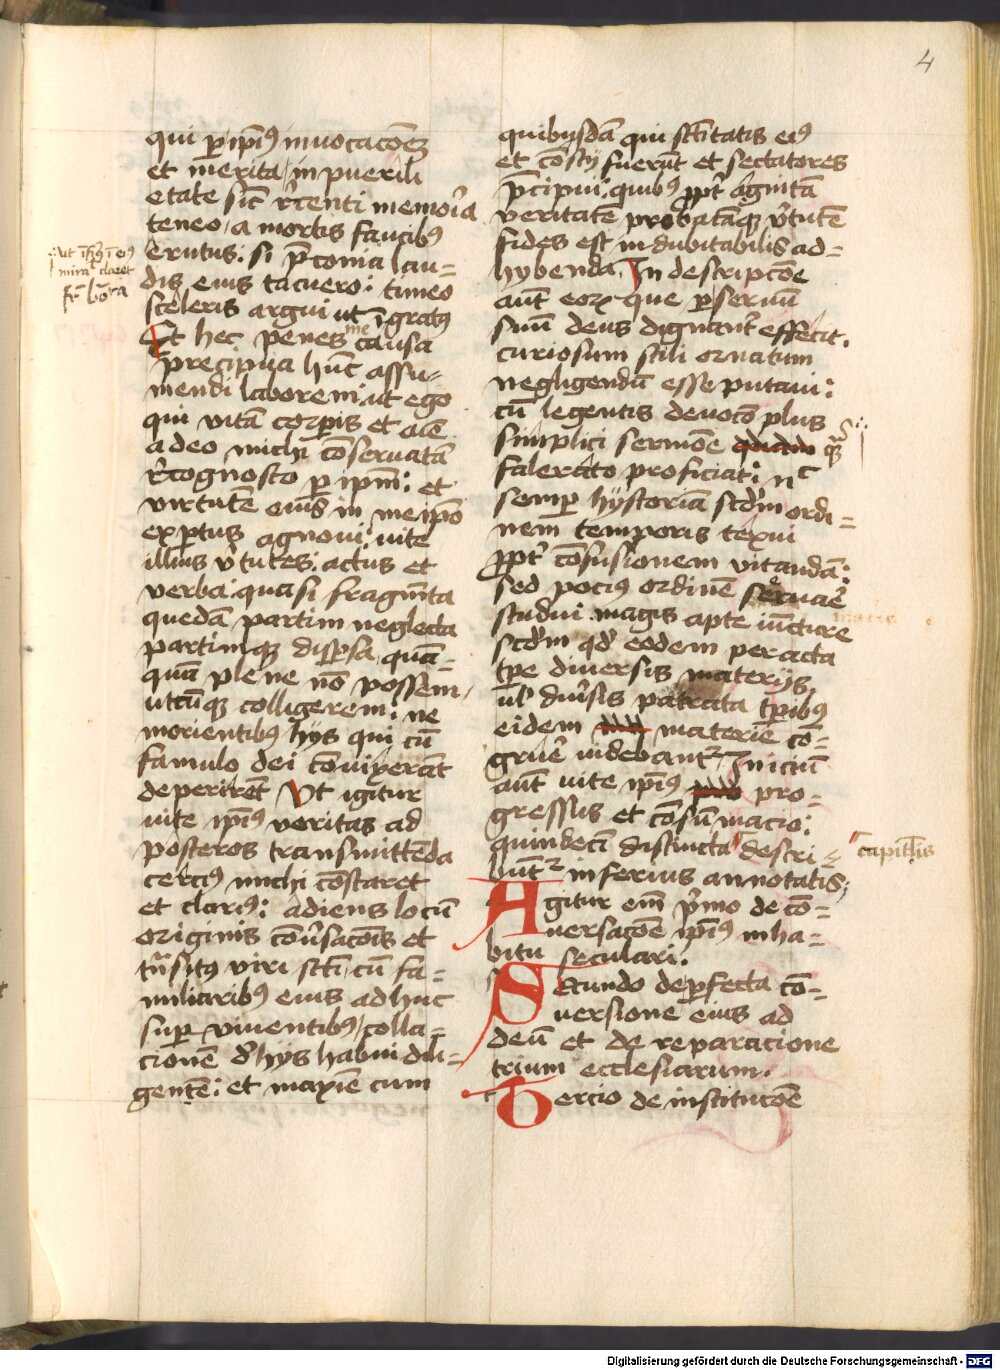 4
qui p ipīꝰ invocacōēꝫ
et merita in puerili
etate sic̄ r̄tenti memor̄ia
teneo / a mortis faucibꝰ
erutus : si p̄conia lau=
dis eius tacuero : timeo
sceleris argui ut īgratꝰ
Et hec penes me causa
precipua hūc assu=
mendi laborem : ut ego
qui vitā corpis et aīe
adeo michi cōservatā
r̄cognosco p ipm̄ : et
virtutē eius in me ipō
exptus agnoui . vite
illius v̄tutes : actus et
verba : quasi fragmēta
quedā partim neglecta
partimqꝫ dispersa , quā=
quā plene nō possem ,
utcūqꝫ colligerem : ne
morientibꝰ hys qui cū
famulo dei cōvixerāt
deperirēt Ut igitur
uite ipīꝰ veritas ad
posteros transmittēda
cerciꝰ michi cōstaret
et clariꝰ : adiens locū
originis cōūsacōīs et
trāsitꝰ viri scī : cū fa=
miliaribꝰ eius adhuc
sup viventibꝰ / colla=
cionē d̄ hys habui dili=
gentē : et maxīe cum
quibusdā qui scītatis eiꝰ
et cōscij fuerūt et sectatores
p̄cipui . quibꝰ ꝓpt̄ agnitā
veritatē probatāqꝫ v̄tutē
fides est indubitabilis ad=
hybenda . In descripcōe
aūt eoꝝ que p servū
suū deus dignant̄ effecit .
curiosum stili ornatum
negligendū esse putaui :
cū legentis devocō plus
simplici sermōe qꝫ
falerato proficiat : nc
semp hystoriā scd̄m ordi=
nem temporis texui
ꝓpt̄ cōfusionem vitandā :
sed pociꝰ ordinē servar̄e
studui magis apte iūcture
scd̄m qd̄ eodem peracta
tpe diuersis materijs
ut̄ diūsis patrata tpibꝰ
eidem materie cō=
gruē uidebant̄ . Iniciū
aūt uite ipīꝰ pro=
gressus et cōsūmacio :
quindeci distincta descri=
būt̄ inferius annotatis ;
Agitur em̄ p̄mo de cō=
versacōe ipīꝰ in ha=
bitu seculari :
Secundo de pfecta cō=
versione eius ad
deū et de reparacione
trium ecclesiarum .
Tercio de institucōe
mira claret
capitlis
Digitalisierung gefördert durch die Deutsche Forschungsgemeinschaft - DFG